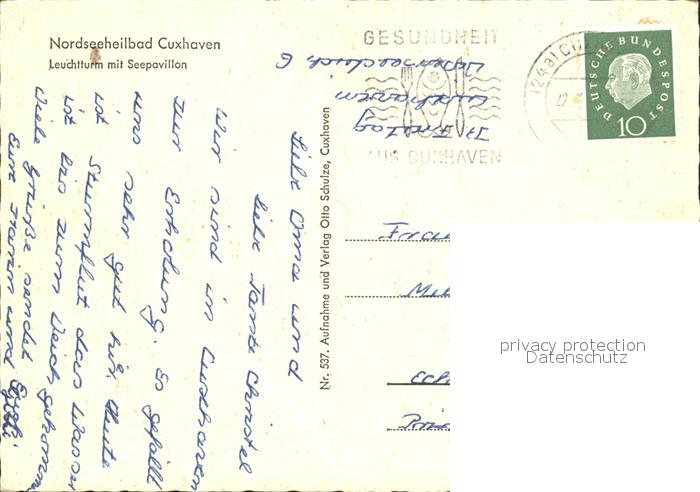 Nordseeheilbad Cuxhaven
Leuchtturm mit Seepavillon
Liebe Oma und
liebe Tante Christel
Wir sind in Cuxhaven
zur Erholung. Es gefällt
uns sehr gut hier. Heute
ist Sturmflut das Wasser
ist bis zum Deich gekommen
Viele Grüße sendet
Eure und
Nr. 537. Aufnahme und Verlag Otto Schulze, Cuxhaven
H. Freitag
Cuxhaven
6
GESUNDHEIT
AUS CUXHAVEN
(24a) CU
DEUTSCHE BUNDESPOST
10
Frau
privacy protection
Datenschutz